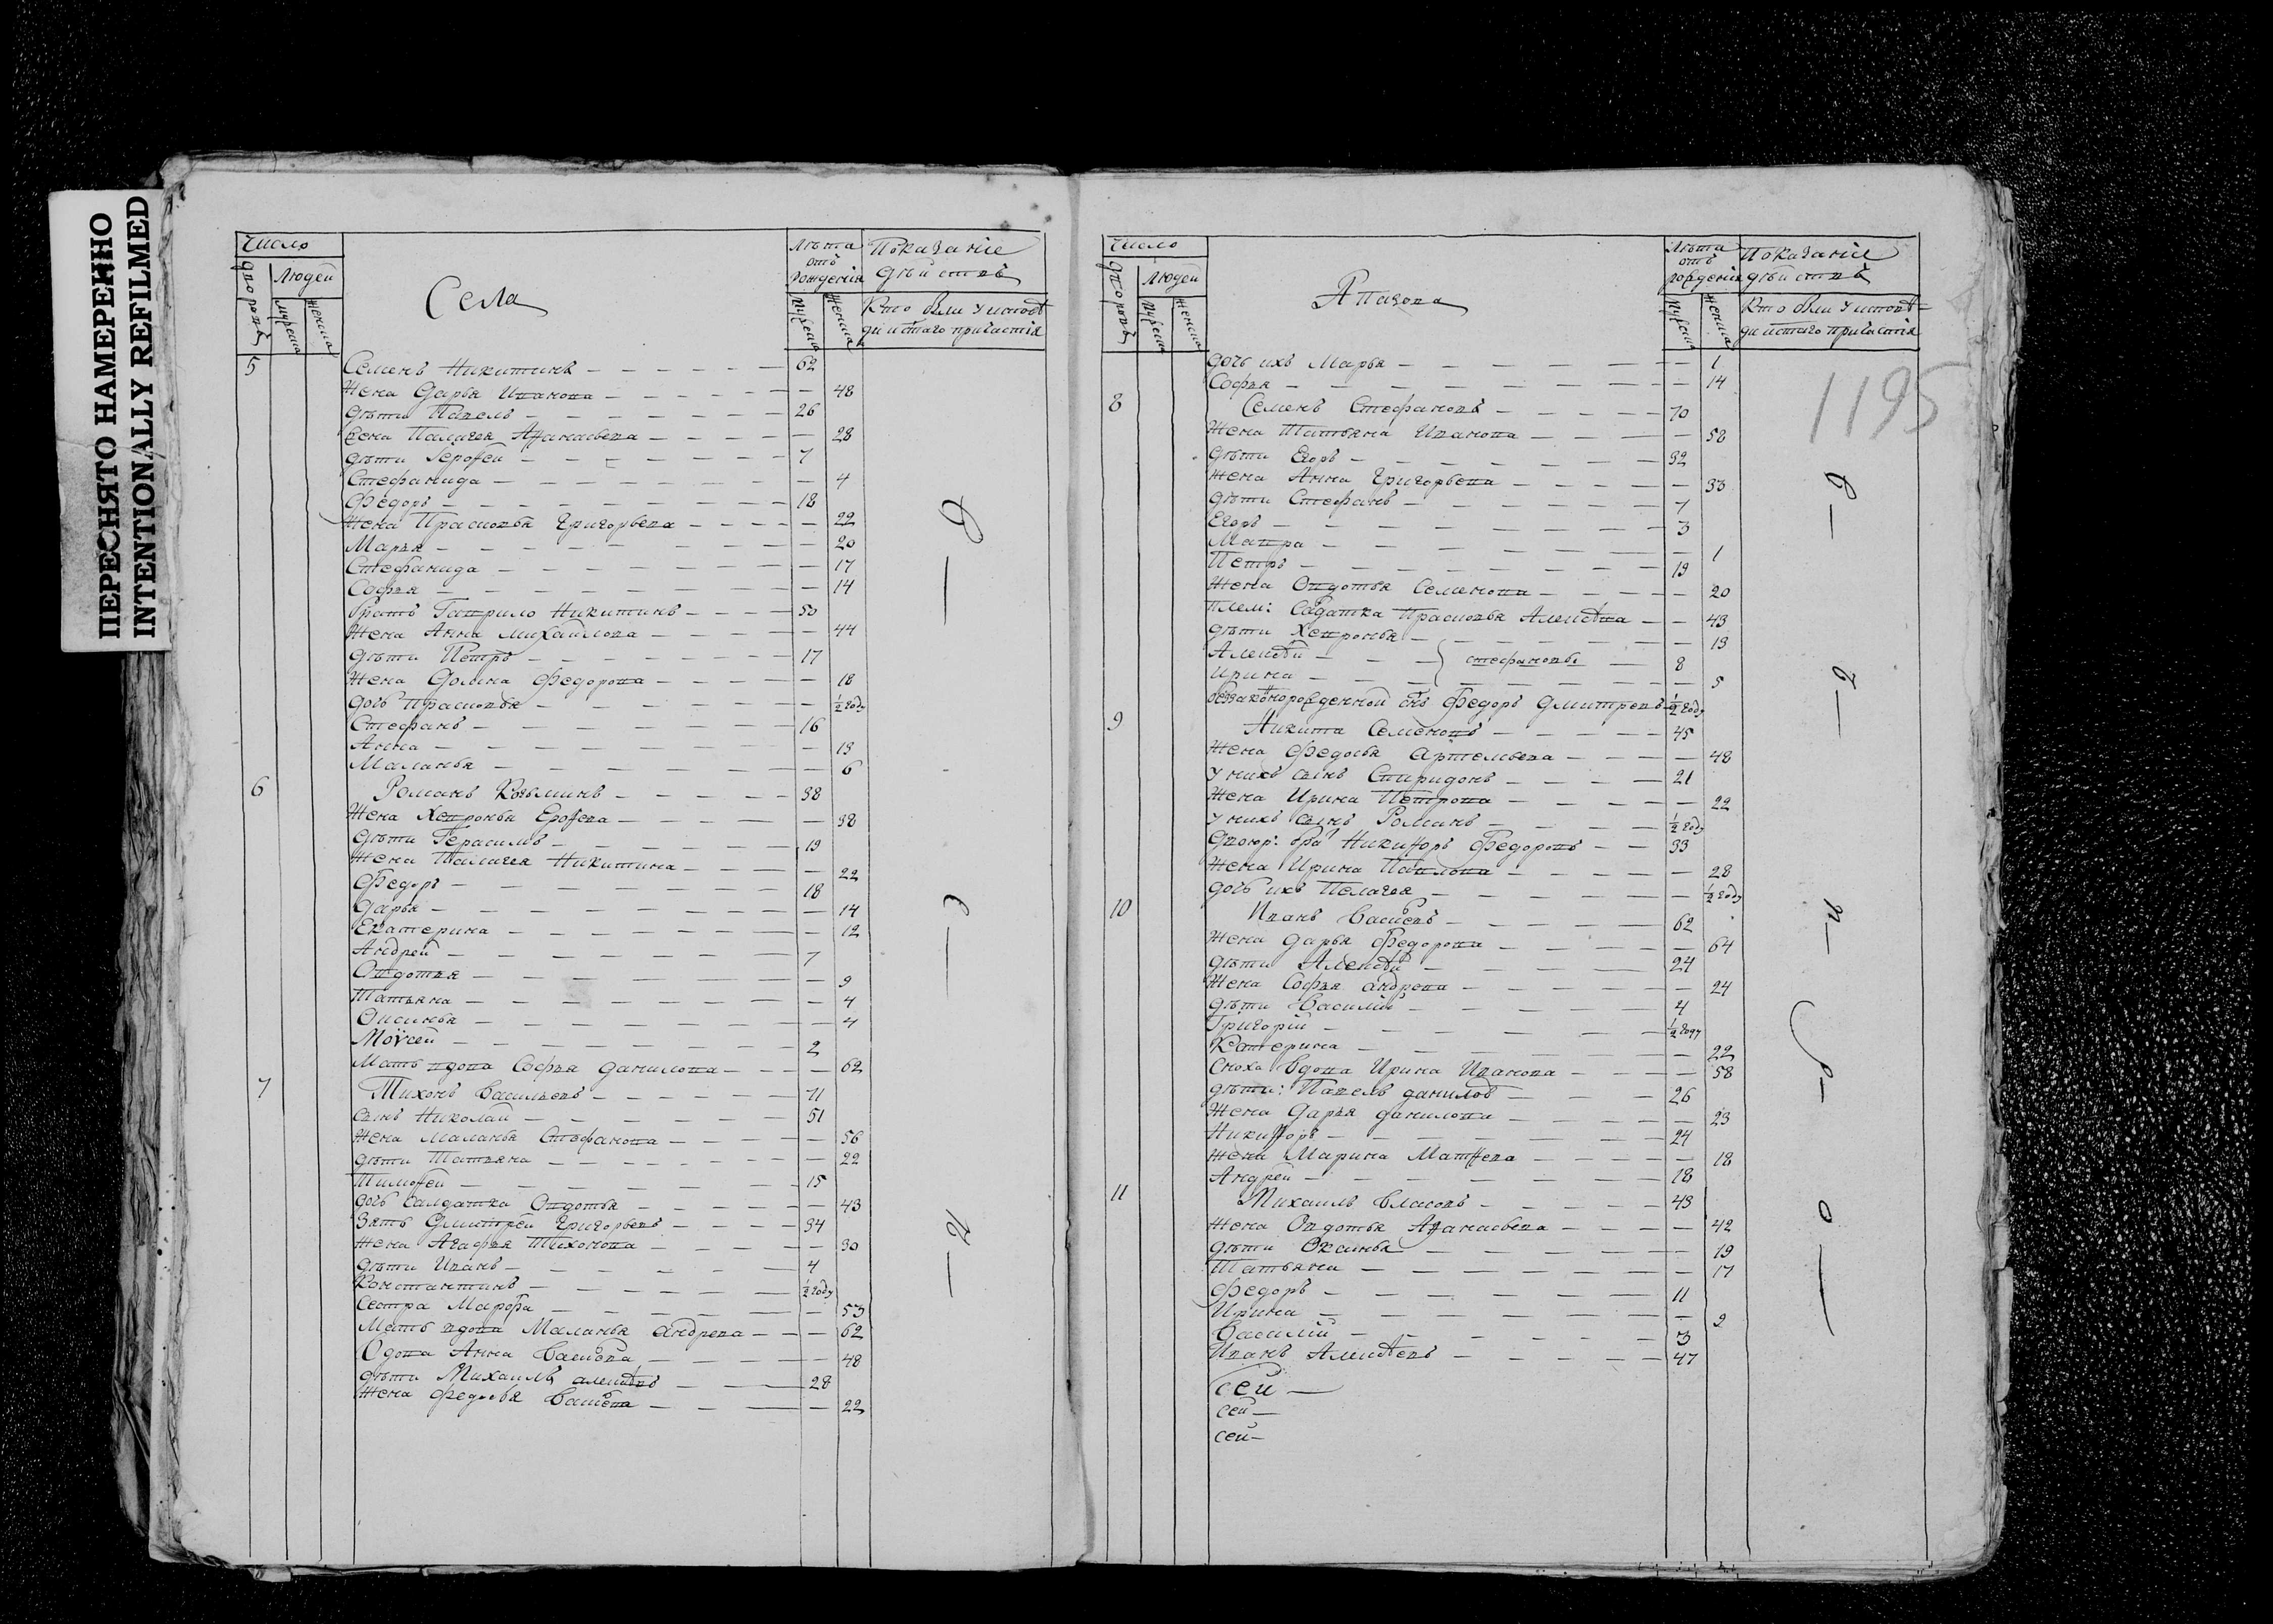 ПЕРЕСНЯТО НАМЕРЕННО
INTENTIONALLY REFILMED
Число
дворовъ
Людей
мужеска
женска
Села
Лѣта
отъ
рожденія
мужеска
женска
Показаніе
дѣйствъ
Кто были у исповѣ
ди и с̃таго причастія
5 Семенъ Никитинъ 62
Жена Дарья Иванова 48
дѣти Павелъ 26
Жена Палагея Афанасьева 28
дѣти Герофей 7
Стефанида 4
Федоръ 18
Жена Прасковья Григорьева 22
Марья 20
Стефанида 17
Софья 14
Братъ Гаврило Никитинъ 50
Жена Анна Михайлова 44
дѣти Петръ 17
Жена Домна Федорова 18
дочь Прасковья ½ году
Стефанъ 16
Анна 13
Маланья 6
6 Романъ Козьминъ 38
Жена Хевронья Ерофева 38
дѣти Герасимъ 19
Жена Палагея Никитина 22
Федоръ 18
Дарья 14
Екатерина 12
Андрей 7
Овдотья 9
Татьяна 4
Оксинья 4
Моѵсей 2
Мать вдова Софья Данилова 62
7 Тихонъ Васильевъ 71
сынъ Николай 51
Жена Маланья Стефанова 56
дѣти Татьяна 22
Тимофей 15
дочь Салдатка Овдотья 43
Зять Дмитрей Григорьевъ 34
Жена Агафья Тихонова 30
дѣти Иванъ 4
Константинъ ½ году
Сестра Марфа 53
Мать вдова Маланья Андрева 62
Вдова Анна 48
дѣти Михаилъ Алексѣвъ 28
Жена Федосья 22
Число
дворовъ
Людей
мужеска
женска
Апазова
Лѣта
отъ
рожденія
мужеска
женска
Показаніе
дѣйствъ
Кто были у исповѣ
ди и с̃таго причастія
1195
дочь ихъ Марья 1
Софья 14
8 Семенъ Стефановъ 70
Жена Татьяна Иванова 58
дѣти Егоръ 32
Жена Анна Григорьева 33
дѣти Стефанъ 7
Егоръ 3
Мавра 1
Петръ 19
Жена Овдотья Семенова 20
плем: Салдатка Прасковья Алексѣва 43
дѣти Хевронья 13
Алексѣй } Стефановы 8
Ирина 5
Беззаконорожденной сн̃ъ Федоръ Дмитревъ ½ году
9 Никита Семеновъ 45
Жена Федосья Артемьева 48
У нихъ сынъ Спиридонъ 21
Жена Ирина Петрова 22
У нихъ сынъ Романъ ½ году
Двоюр: бра Никифоръ Федоровъ 33
Жена Ирина Павлова 28
дочь ихъ Пелагея ½ году
10 Иванъ 62
Жена Дарья Федорова 64
дѣти Алексѣй 24
Жена Софья Андрева 24
дѣти Василій 4
Григорій ½ году
Катерина 22
Сноха вдова Ирина Иванова 58
дѣти: Павелъ Данилов 26
Жена Дарья Данилова 23
Никифоръ 24
Жена Марина Матфева 18
Андрей 18
11 Михаилъ Власовъ 43
Жена Овдотья Афанасьева 42
дѣти Оксинья 19
Татьяна 17
Федоръ 11
Ирина 9
Василій 3
Иванъ Алексѣевъ 47
Сей
сей
сей